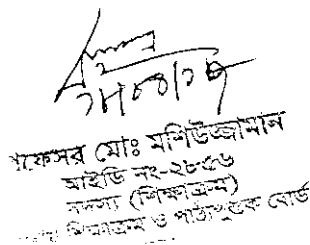 প্রফেসর মোঃ মশিউজ্জামান
আইডি নং-২৮৫৬
সদস্য (শিক্ষাক্রম)
শিক্ষাক্রম ও পাঠ্যপুস্তক বোর্ড